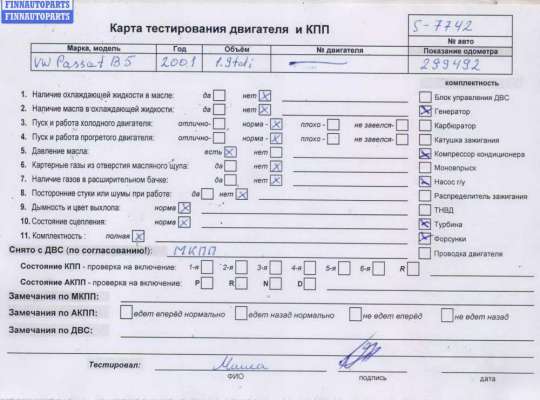 FINNAUTOPARTS
FINNAUTOPARTS
Карта тестирования двигателя и КПП
S-7742
№ авто
Марка, модель Год Объём № двигателя Показание одометра
VW Passat B5 2001 1.9tdi 299492
комплектность
1. Наличие охлаждающей жидкости в масле: да нет
2. Наличие масла в охлаждающей жидкости: да нет
3. Пуск и работа холодного двигателя: отлично- норма - плохо - не завелся-
4. Пуск и работа прогретого двигателя: отлично- норма - плохо - не завелся-
5. Давление масла: есть нет
6. Картерные газы из отверстия масляного щупа: да нет
7. Наличие газов в расширительном бачке: да нет
8. Посторонние стуки или шумы при работе: да нет
9. Дымность и цвет выхлопа: норма
10. Состояние сцепления: норма
11. Комплектность : полная
Блок управления ДВС
Генератор
Карбюратор
Катушка зажигания
Компрессор кондиционера
Моновпрыск
Насос г/у
Распределитель зажигания
ТНВД
Турбина
Форсунки
Проводка двигателя
Снято с ДВС (по согласованию!): МКПП
Состояние КПП - проверка на включение: 1-я 2-я 3-я 4-я 5-я 6-я R
Состояние АКПП - проверка на включение: P R N D
Замечания по МКПП:
Замечания по АКПП: едет вперёд нормально едет назад нормально не едет вперёд не едет назад
Замечания по ДВС:
Тестировал: Миша
ФИО подпись дата